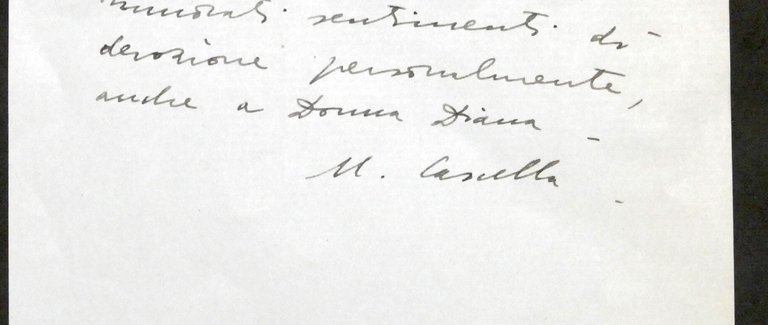 sentimenti di
devozione personalmente,
anche a Donna Diana -
M. Casella -